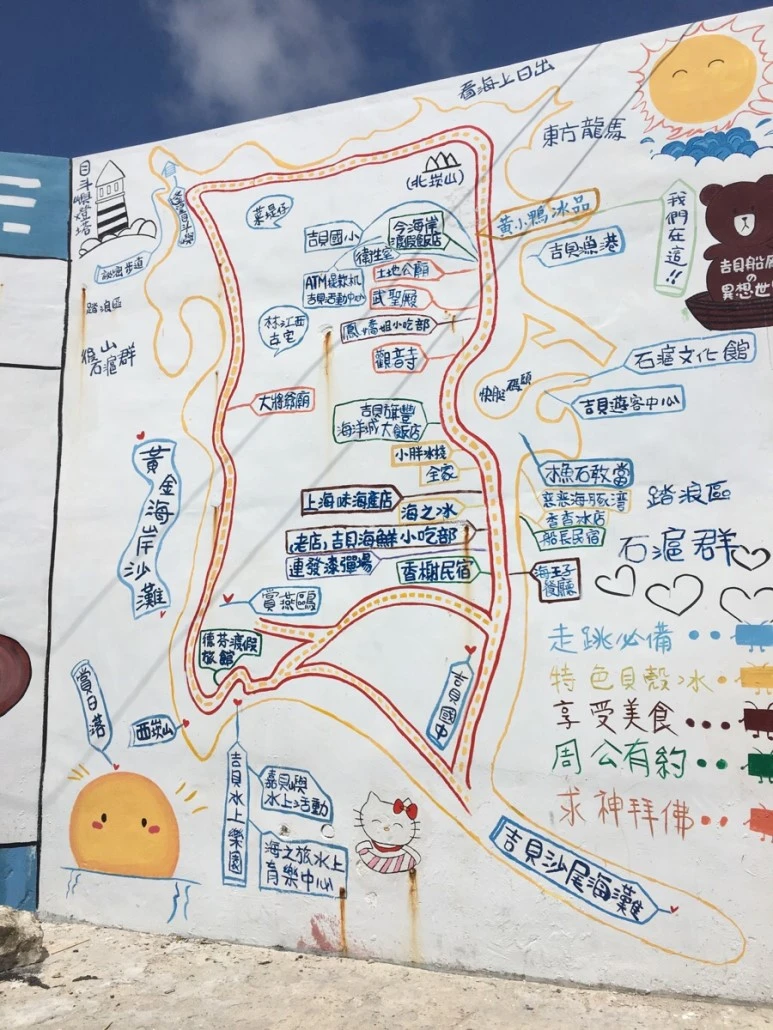 看海上日出
東方龍馬
目斗嶼燈塔
(北崁山)
黃小鴨冰品
我們在這!!
吉貝漁港
吉貝船屋
の
異想世界
吉貝國小
今海岸
渡假飯店
衛生室
土地公廟
ATM提款机
吉貝活動中心
武聖殿
鳳嬌姐小吃部
觀音寺
踏浪區
石滬群
林江西
古宅
大將爺廟
石滬文化館
快艇碼頭
吉貝遊客中心
吉貝旗豐
海洋城大飯店
小胖冰燒
全家
黃金海岸沙灘
石敢當
香香冰店
船長民宿
踏浪區
石滬群
上海味海產店
海之冰
老店,吉貝海鮮小吃部
連發漆彈場
香榭民宿
海王子
餐廳
賞燕鷗
德芬渡假
旅館
吉貝國中
走跳必備
特色貝殼冰
享受美食
周公有約
求神拜佛
賞日落
西崁山
吉貝水上樂園
嘉貝嶼
水上活動
海之旅水上
育樂中心
吉貝沙尾海灘